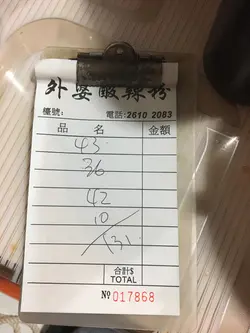 外婆酸辣粉
檯號： 電話:2610 2083
品 名 金額
43
36
42
10
131
合計$
TOTAL
№ 017868